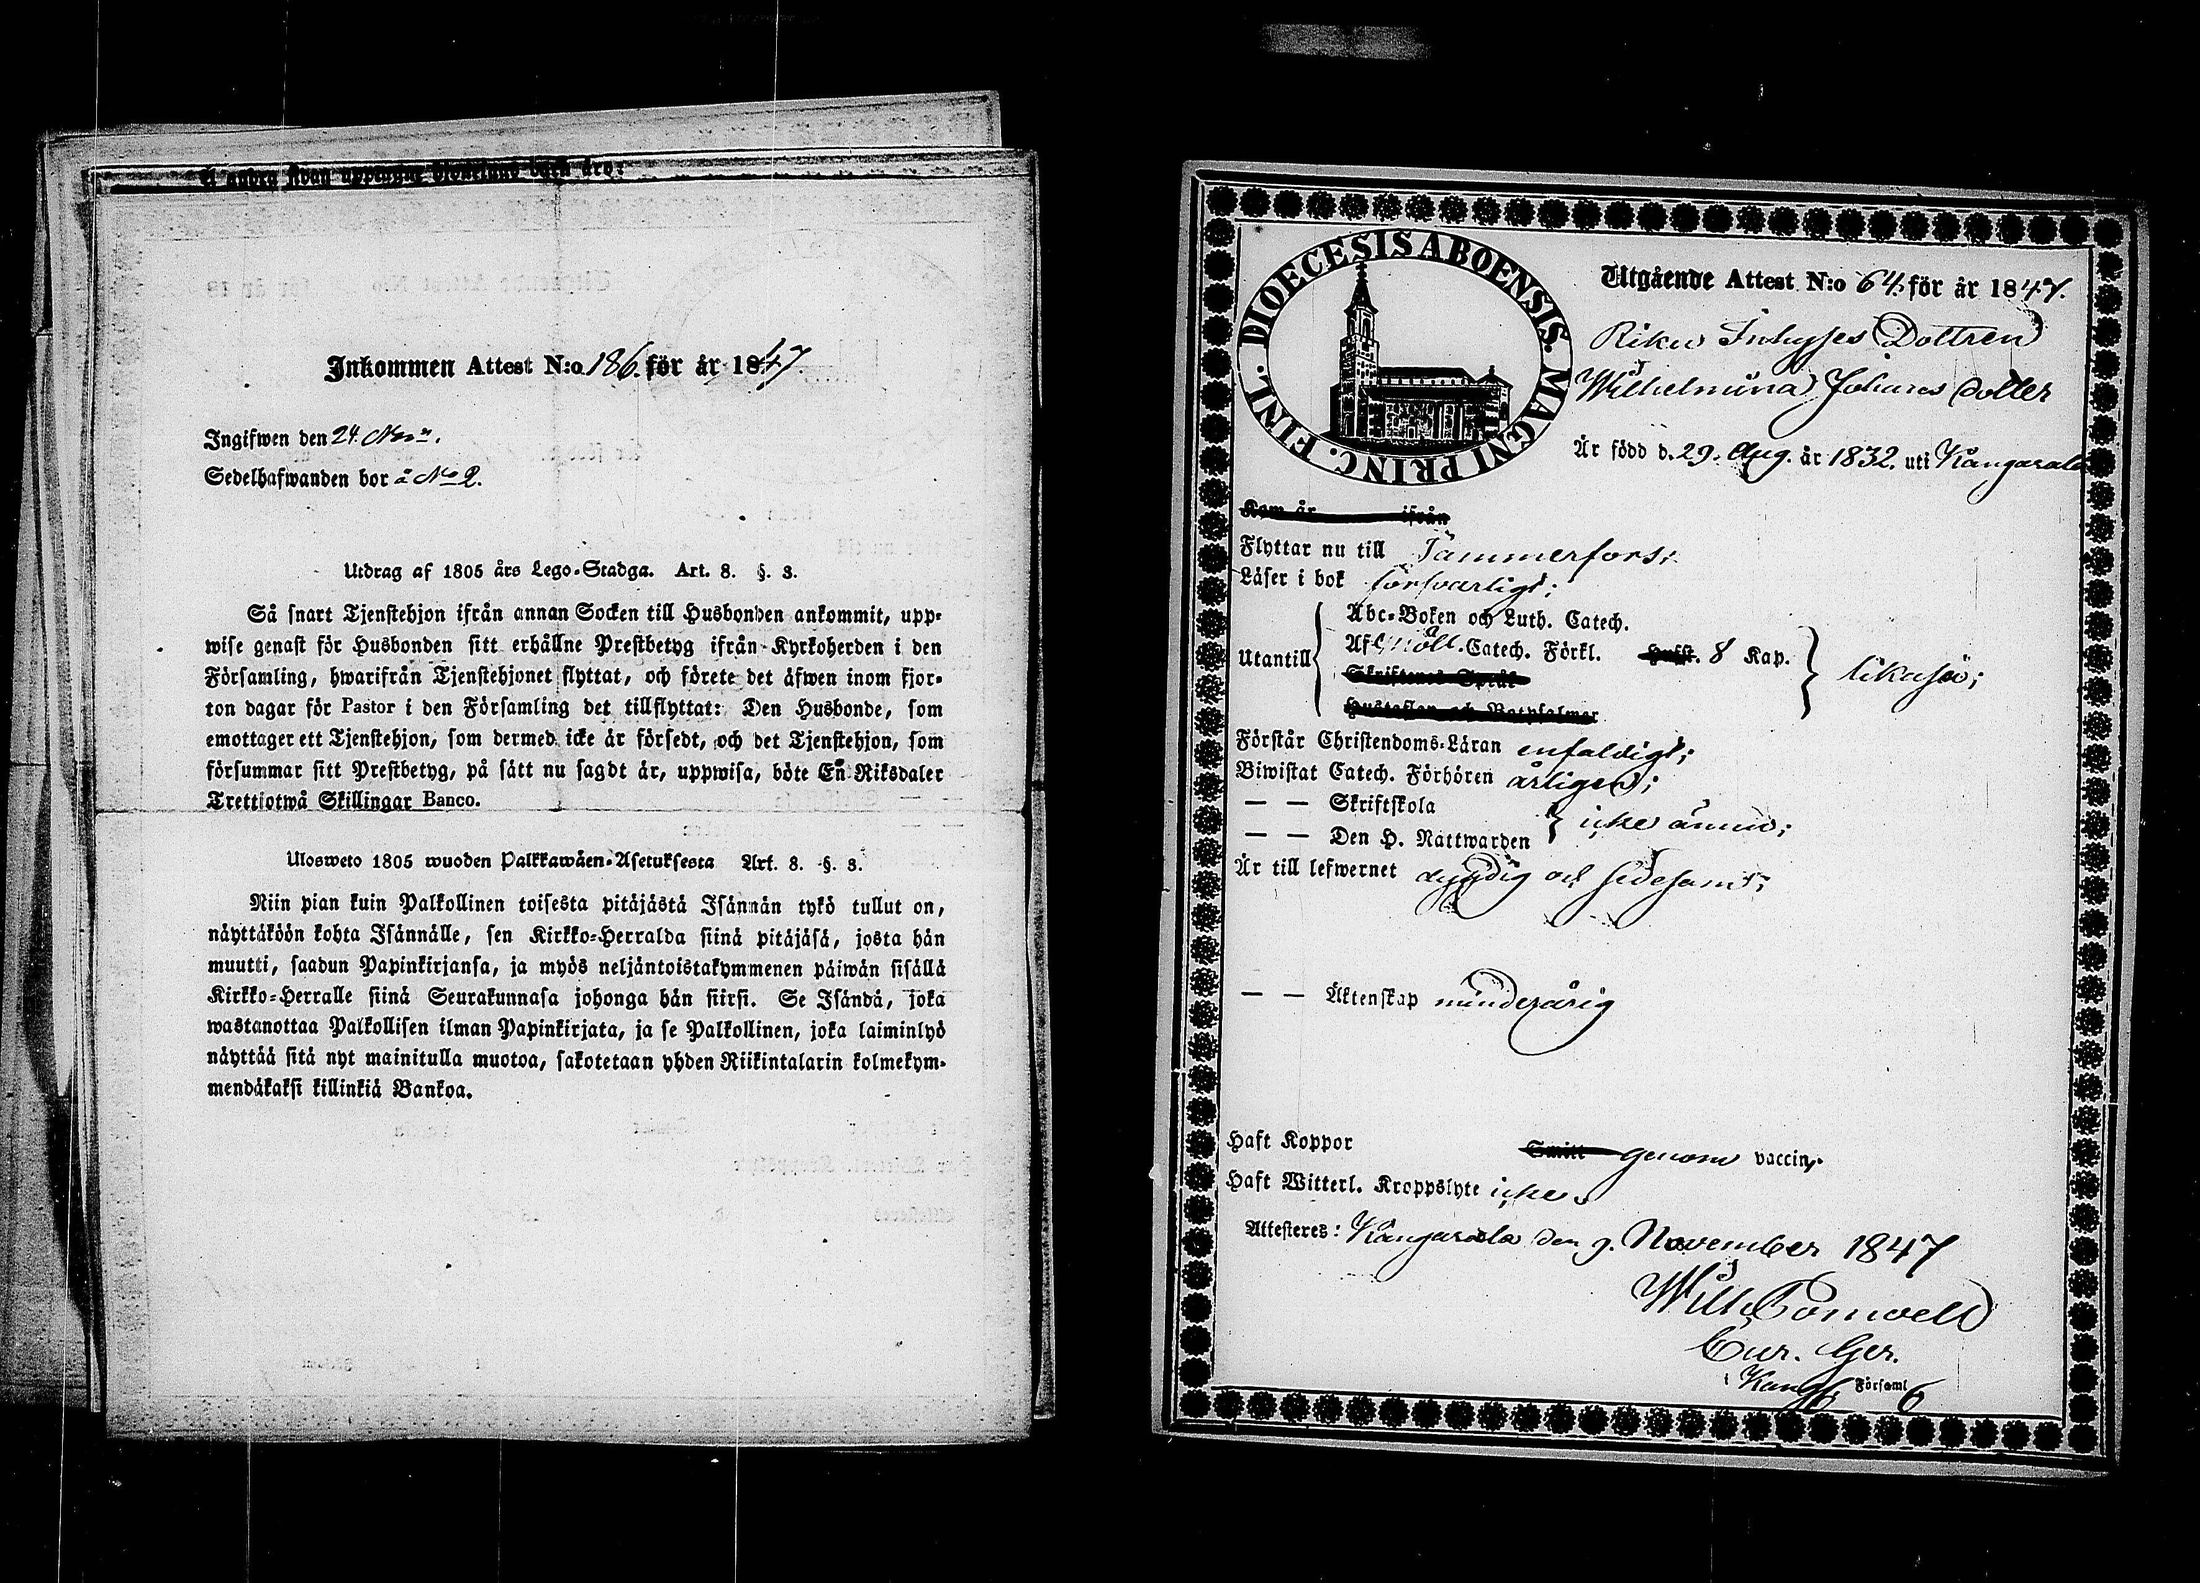 Inkommen Attest N:o 186. för år 1847.
Ingifwen den 24. Nov.
Sedelhafwanden bor å No 2.
Utdrag af 1805 års Lego-Stadga. Art. 8. §. 3.
Så snart Tjenstehjon ifrån annan Socken till Husbonden ankommit, upp-
wise genast för Husbonden sitt erhållne Prestbetyg ifrån Kyrkoherden i den
Församling, hwarifrån Tjenstehjonet flyttat, och förete det äfwen inom fjor-
ton dagar för Pastor i den Församling det tillflyttat: Den Husbonde, som
emottager ett Tjenstehjon, som dermed icke är försedt, och det Tjenstehjon, som
försummar sitt Prestbetyg, på sätt nu sagdt är, uppwisa, böte En Riksdaler
Trettiotwå Skillingar Banco.
Ulosweto 1805 wuoden Palkkawäen-Asetuksesta Art. 8. §. 3.
Niin pian kuin Palkollinen toisesta pitäjästä Isännän tykö tullut on,
näyttäköön kohta Isännälle, sen Kirkko-Herralda siinä pitäjäsä, josta hän
muutti, saadun Papinkirjansa, ja myös neljäntoistakymmenen päiwän sisällä
Kirkko-Herralle siinä Seurakunnasa johonga hän siirsi. Se Isändä, joka
wastanottaa Palkollisen ilman Papinkirjata, ja se Palkollinen, joka laiminlyö
näyttää sitä nyt mainitulla muotoa, sakotetaan yhden Riikintalarin kolmekym-
mendäkaksi killinkiä Bankoa.
DIOECESIS ABOENSIS. MAGNI PRINC. FINL.
Utgående Attest N:o 64. för år 1847.
Inhyses Dottren
Wilhelmina Johans dotter
Är född d. 29. Aug. år 1832. uti Kangasala
Kom år ifrån
Flyttar nu till Tammerfors;
Läser i bok försvarligt;
Utantill
Abc-Boken och Luth. Catech.
Af Möll. Catech. Förkl. Hufst. 8 Kap.
Skriftenes Språk
Hustaflan och Botpsalmer
likaså;
Förstår Christendoms-Läran enfaldigt;
Biwistat Catech. Förhören årligen;
— — Skriftskola
— — Den H. Nattwarden
icke ännu;
Är till lefwernet dygdig och sedesam;
— — Äktenskap minderårig
Haft Koppor Smitt genom vaccin.
Haft Witterl. Kroppslyte icke.
Attesteres: Kangasala den 9. November 1847
Församl